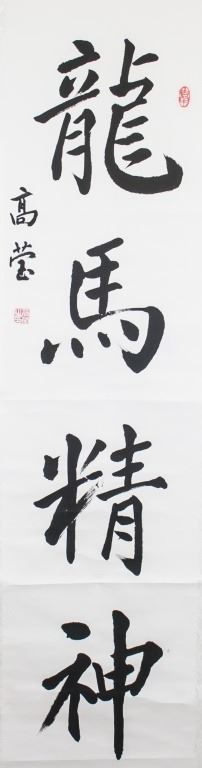 龍馬精神
高莹